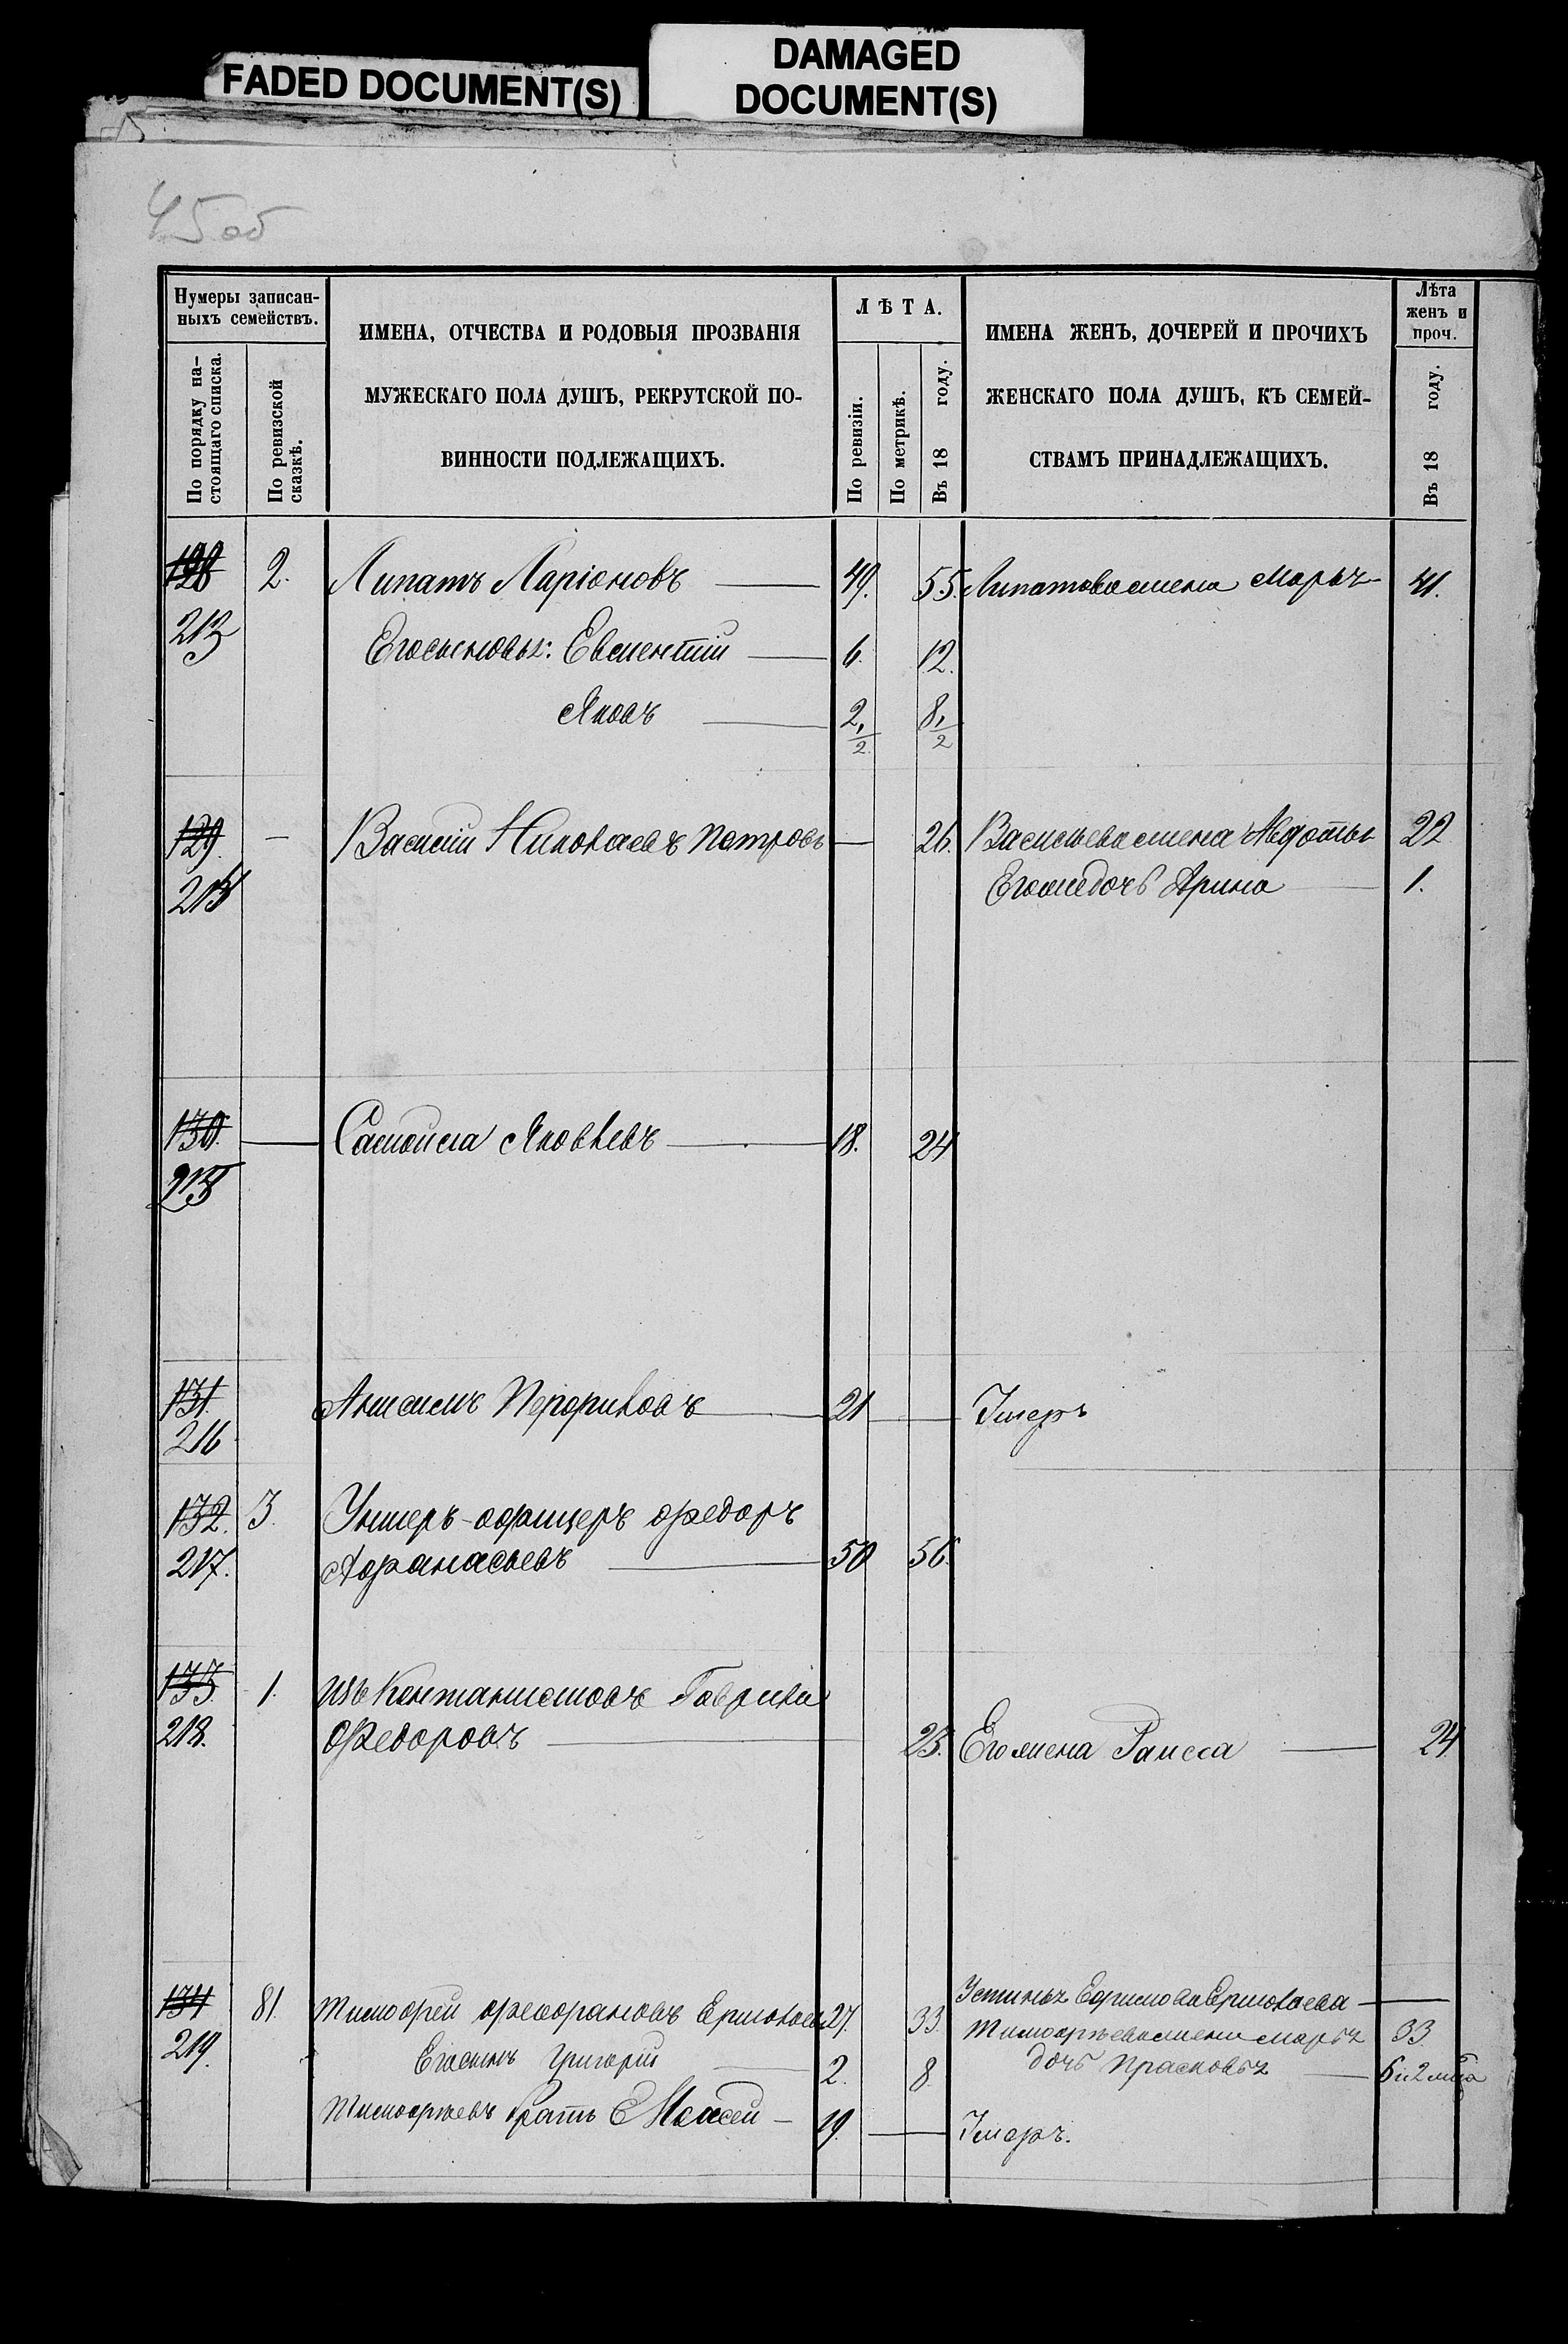 FADED DOCUMENT(S)
DAMAGED
DOCUMENT(S)
45 об
Нумеры записан-
ныхъ семействъ.
По порядку на-
стоящаго списка.
По ревизской
сказкѣ.
ИМЕНА, ОТЧЕСТВА И РОДОВЫЯ ПРОЗВАНІЯ
МУЖЕСКАГО ПОЛА ДУШЪ, РЕКРУТСКОЙ ПО-
ВИННОСТИ ПОДЛЕЖАЩИХЪ.
ЛѢТА.
По ревизіи.
По метрикѣ.
Въ 18 году.
ИМЕНА ЖЕНЪ, ДОЧЕРЕЙ И ПРОЧИХЪ
ЖЕНСКАГО ПОЛА ДУШЪ, КЪ СЕМЕЙ-
СТВАМЪ ПРИНАДЛЕЖАЩИХЪ.
Лѣта
женъ и
проч.
Въ 18 году.
128 2. Липатъ Ларіоновъ — 49. 55. Липатова жена Марья 41.
213 Его сыновья: Евментій — 6. 12.
Яковъ — 2,/2. 8,/2
129. — Василій Николаевъ Петровъ — 26. Васильева жена Авдотья 22
Его же дочь Арина — 1.
130. — Самойла Яковлевъ — 18. 24
215
131. Анисимъ Перфиловъ — 21 — Умеръ
216
132. 3. Унтеръ-офицеръ Федоръ
217. Афанасьевъ — 50 56.
133. 1. Изъ Кантонистовъ Гаврила
218. Федоровъ — 25. Его жена Раисса — 24.
Устинья Ефимова Ермолаева —
134 81. Тимофей Ермолаевъ 27. 33. Тимофѣева жена Марья 33.
219. Его сынъ Григорій — 2. 8. дочь Прасковья — 6 и 2 мца
Тимофѣевъ братъ Моисей — 19. — Умеръ.